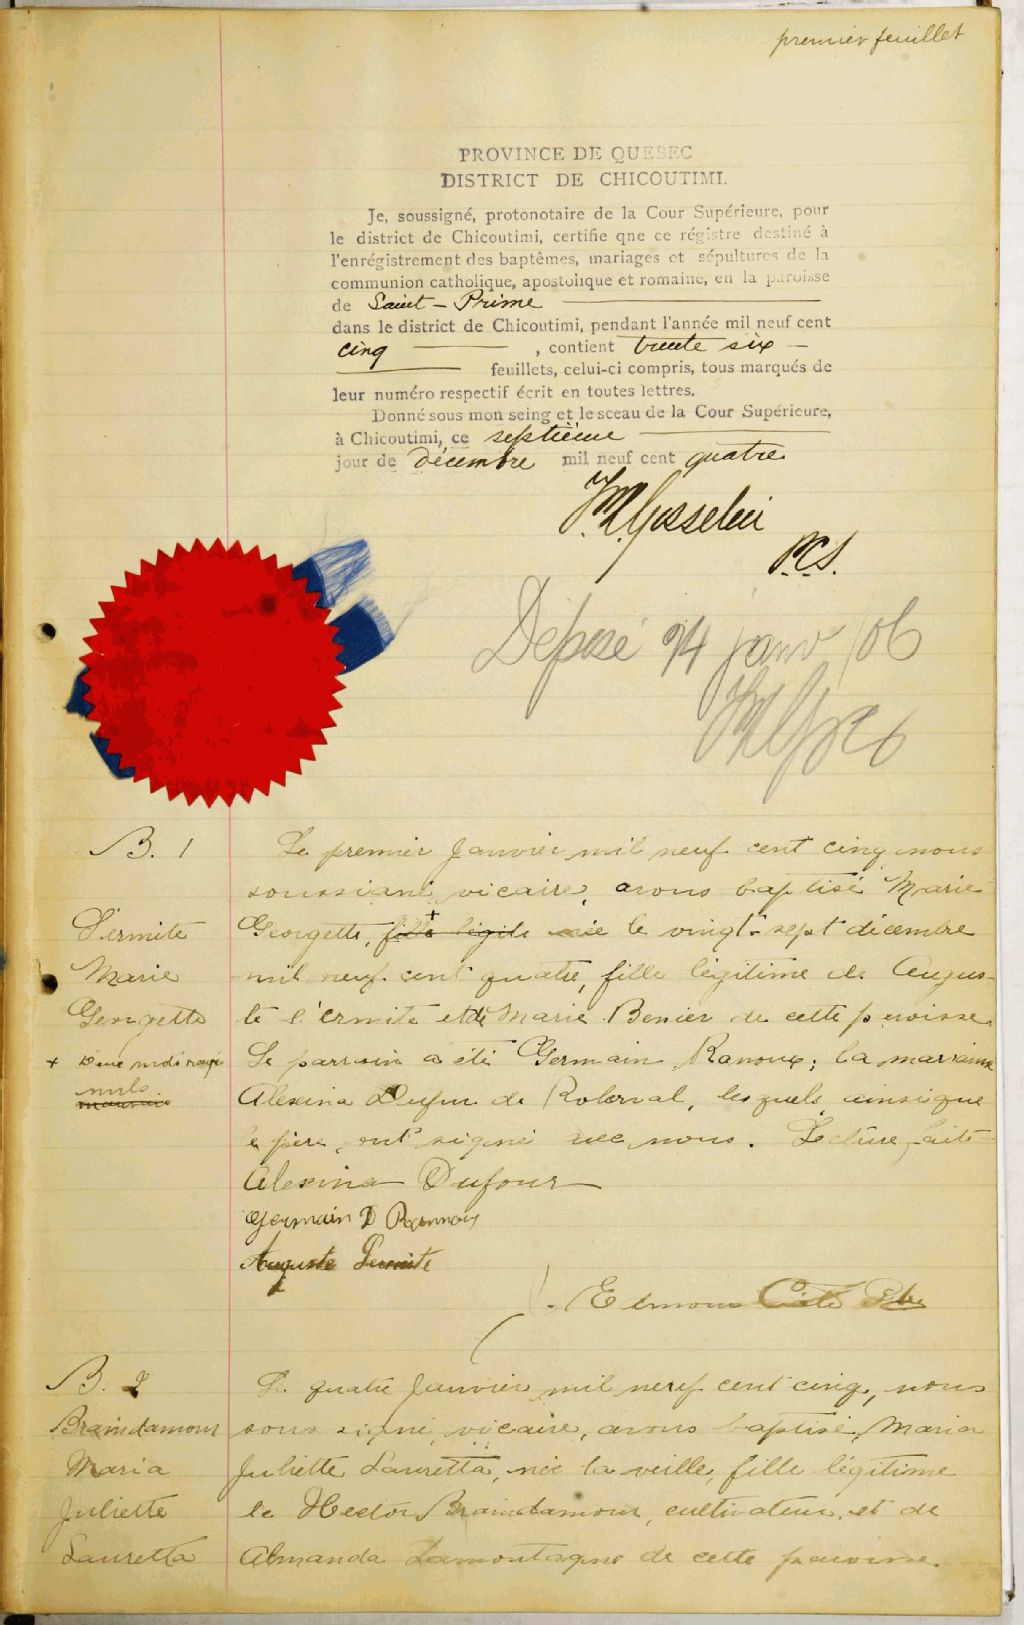 premier feuillet
PROVINCE DE QUEBEC
DISTRICT DE CHICOUTIMI.
Je, soussigné, protonotaire de la Cour Supérieure, pour
le district de Chicoutimi, certifie qne ce régistre destiné à
l'enrégistrement des baptêmes, mariages et sépultures de la
communion catholique, apostolique et romaine, en la paroisse
de Saint-Prime
dans le district de Chicoutimi, pendant l'année mil neuf cent
cinq , contient trente six
feuillets, celui-ci compris, tous marqués de
leur numéro respectif écrit en toutes lettres.
Donné sous mon seing et le sceau de la Cour Supérieure,
à Chicoutimi, ce septième
jour de décembre mil neuf cent quatre
Gosselin
P.C.S.
Déposé 24 janv /06
B. 1
Lermite
Marie
Georgette
+ nuls
Le premier Janvier mil neuf cent cinq nous
soussigné, vicaire, avons baptisé Marie
Georgette, fille légit née le vingt-sept décembre
mil neuf cent quatre, fille légitime de Augus-
te L'Ermite et de Marie Benier de cette paroisse
Le parrain a été Germain Ranoux; la marraine
Alexina Dufour de Roberval, lesquels ainsi que
le père, ont signé avec nous. Lecture faite
Alexina Dufour
Germain D Rannoux
Auguste Lermite
Edmond Côté Ptre
B. 2
Braindamour
Maria
Juliette
Lauretta
Le quatre Janvier mil neuf cent cinq, nous
soussigné, vicaire, avons baptisé, Maria
Juliette Lauretta, née la veille, fille légitime
de Hector Braindamour, cultivateur, et de
Almanda Lamontagne de cette paroisse.